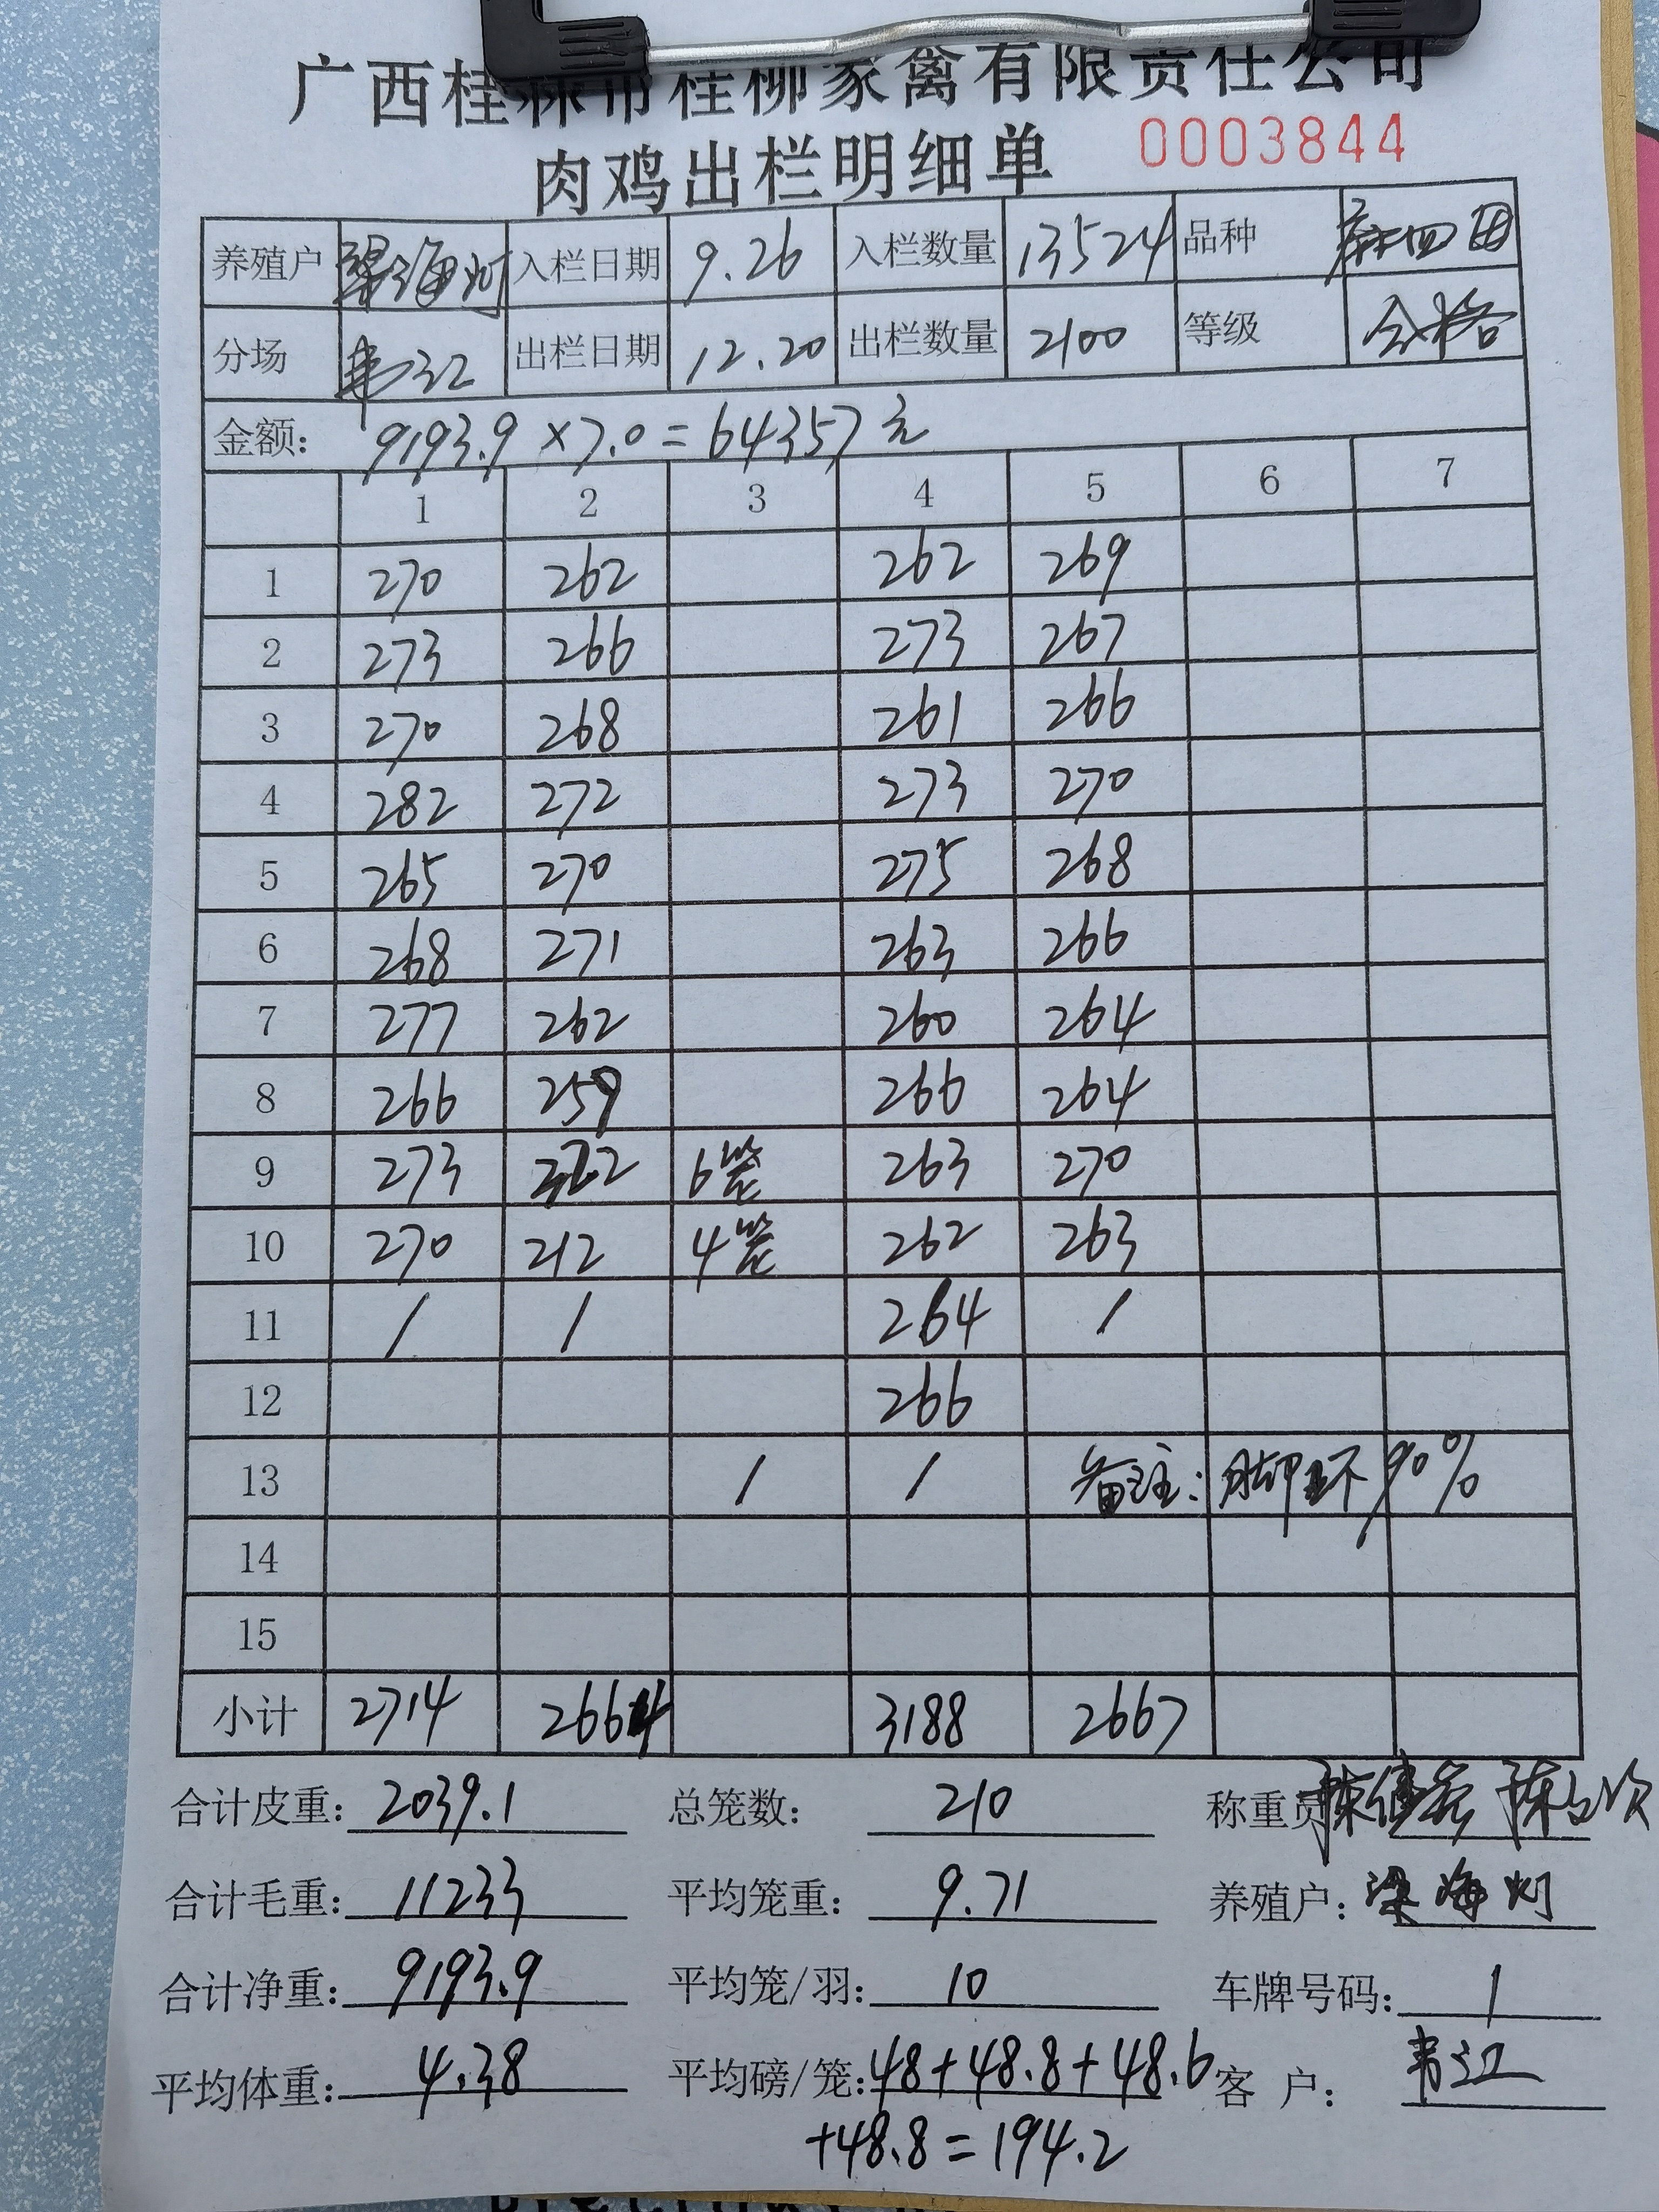 广西桂林市桂柳家禽有限责任公司
肉鸡出栏明细单 0003844
养殖户 梁海灯 入栏日期 9.26 入栏数量 13524 品种
分场 韦江 出栏日期 12.20 出栏数量 2100 等级 合格
金额: 9193.9×7.0=64357元
1 2 3 4 5 6 7
1 270 262 262 269
2 273 266 273 267
3 270 268 261 266
4 282 272 273 270
5 265 270 275 268
6 268 271 263 266
7 277 262 260 264
8 266 259 266 264
9 273 322 6笼 263 270
10 270 212 4笼 262 263
11 / / 264 /
12 266
13 / / 备注:脚环90%
14
15
小计 2714 2664 3188 2667
合计皮重: 2039.1 总笼数: 210 称重员
合计毛重: 11233 平均笼重: 9.71 养殖户: 梁海灯
合计净重: 9193.9 平均笼/羽: 10 车牌号码: /
平均体重: 4.38 平均磅/笼: 48+48.8+48.6 客 户: 韦江
+48.8=194.2